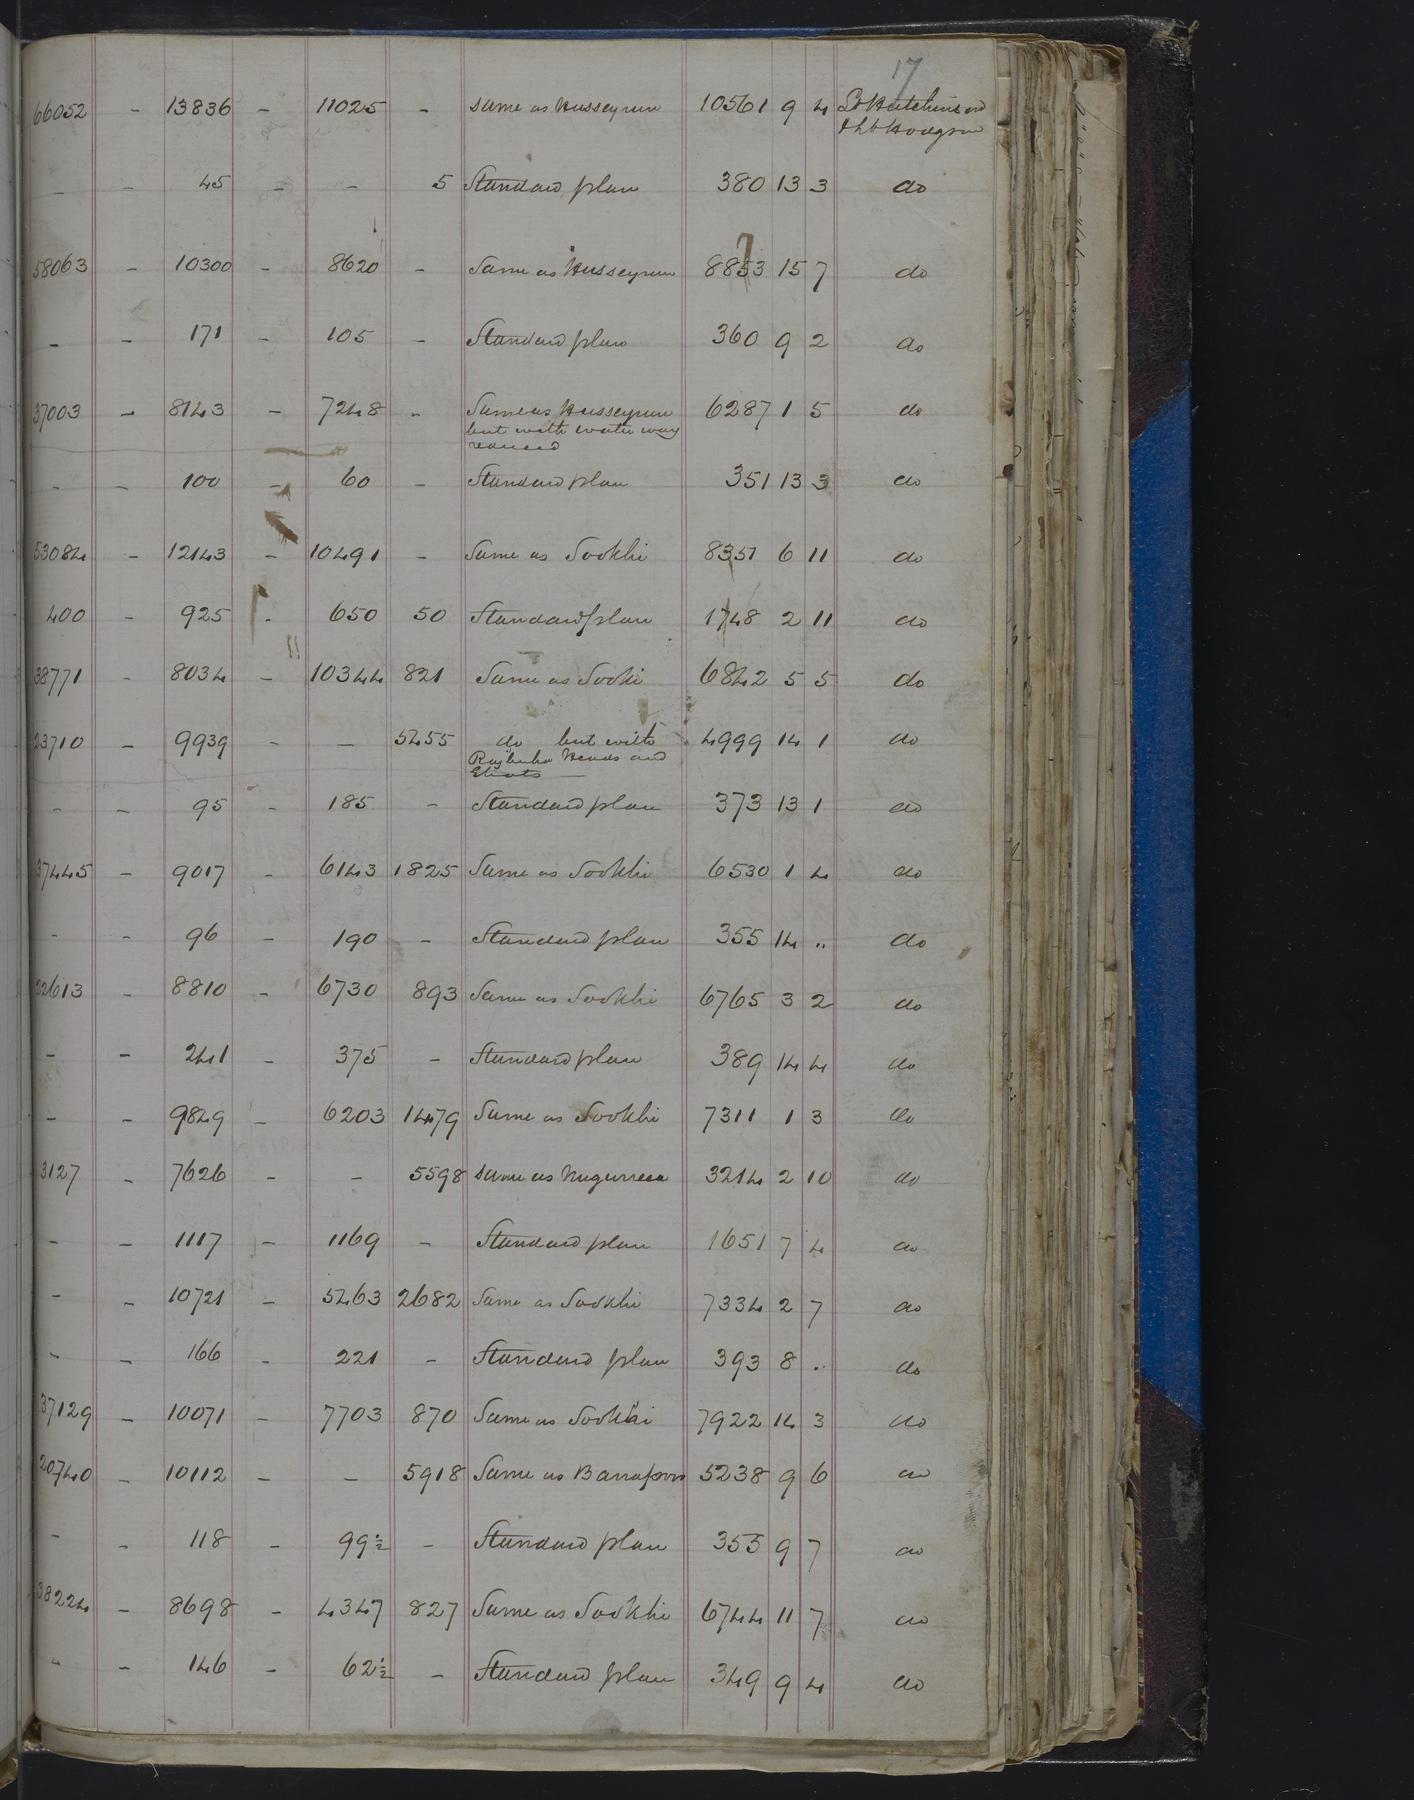 17
66052 - 13836 - 11025 - Same as Husseypur 10561 9 4 Lt Hutchinson
& Lt Hodgson
- - 45 - - 5 Standard plan 380 13 3 do
58063 - 10300 - 8620 - Same as Husseypur 8853 15 7 do
- - 171 - 105 - Standard plan 360 9 2 do
37003 - 8143 - 7248 - Same as Husseypur 6287 1 5 do
but with water way
reduced
- - 100 - 60 - Standard plan 351 13 3 do
53084 - 12143 - 10491 - Same as Sookhi 8351 6 11 do
400 - 925 - 650 50 Standard plan 1748 2 11 do
38771 - 8034 - 10344 821 Same as Sooki 6842 5 5 do
23710 - 9939 - - 5455 do but with 4999 14 1 do
Rajbuha Heads and
Ghats
- - 95 - 185 - Standard plan 373 13 1 do
37445 - 9017 - 6143 1825 Same as Sookhi 6530 1 4 do
- - 96 - 190 - Standard plan 355 14 .. do
22613 - 8810 - 6730 893 Same as Sookhi 6765 3 2 do
- - 241 - 375 - Standard plan 389 14 4 do
- - 9849 - 6203 1479 Same as Sookhi 7311 1 3 do
3127 - 7626 - - 5598 Same as 3214 2 10 do
- - 1117 - 1169 - Standard plan 1651 7 4 do
- - 10721 - 5463 2682 Same as Sookhi 7334 2 7 do
- - 166 - 221 - Standard plan 393 8 .. do
37129 - 10071 - 7703 870 Same as Sookhi 7922 14 3 do
20740 - 10112 - - 5918 Same as 5238 9 6 do
- - 118 - 99½ - Standard plan 353 9 7 do
38224 - 8698 - 4347 827 Same as Sookhi 6744 11 7 do
- - 146 - 62½ - Standard plan 349 9 4 do